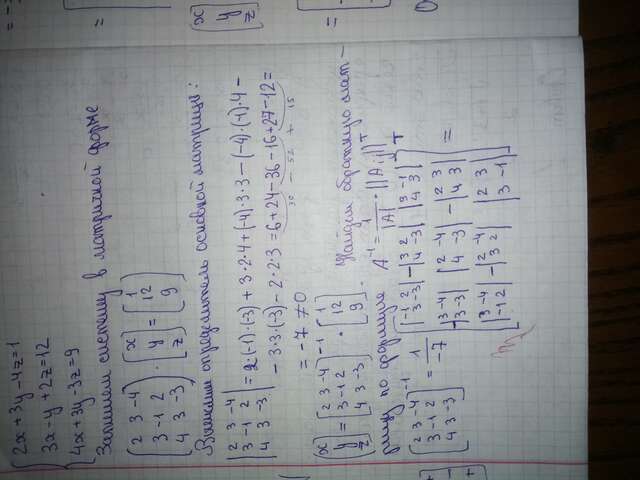 {2x+3y-4z=1
3x-y+2z=12
4x+3y-3z=9
Запишем систему в матричной форме
(2 3 -4
3 -1 2
4 3 -3) · (x
y
z) = (1
12
9)
определитель основной матрицы:
|2 3 -4
3 -1 2
4 3 -3| = 2·(-1)·(-3)+3·2·4+(-4)·3·3-(-4)·(-1)·4-
-3·3·(-3)-2·2·3=6+24-36-16+27-12=
30 - 52 + 15
= -7 ≠ 0
(x
y
z) = (2 3 -4
3 -1 2
4 3 -3)⁻¹ · (1
12
9). Найдем обратную мат-
рицу по формуле A⁻¹ = 1/|A| · ||A_ij||ᵀ
(2 3 -4
3 -1 2
4 3 -3)⁻¹ = 1/-7 [|-1 2
3 -3| -|3 2
4 -3| |3 -1
4 3|
-|3 -4
3 -3| |2 -4
4 -3| -|2 3
4 3|
|3 -4
-1 2| -|2 -4
3 2| |2 3
3 -1|]ᵀ =